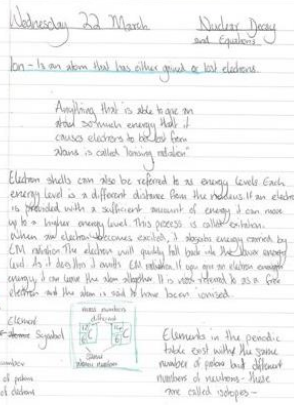 Wednesday 22 March
Nuclear Decay
and Equations
Ion - Is an atom that has either gained or lost electrons.
Anything that is able to give an
atom so much energy that it
causes electrons to be lost from
atoms is called "ionising radiation"
Electron shells can also be referred to as energy levels. Each
energy level is a different distance from the nucleus. If an electron
is provided with a sufficient amount of energy it can move
up to a higher energy level. This process is called excitation.
When an electron becomes excited, it absorbs energy carried by
EM radiation. The electron will quickly fall back to the lower energy
level. As it does this it emits EM radiation. If you give an electron enough
energy, it can leave the atom altogether. It is now referred to as a free
electron and the atom is said to have been ionised.
Element
Symbol
mass numbers
different
C C
Same
atomic number
of protons
of electrons
Elements in the periodic
table exist with the same
number of protons but different
numbers of neutrons - these
are called isotopes -